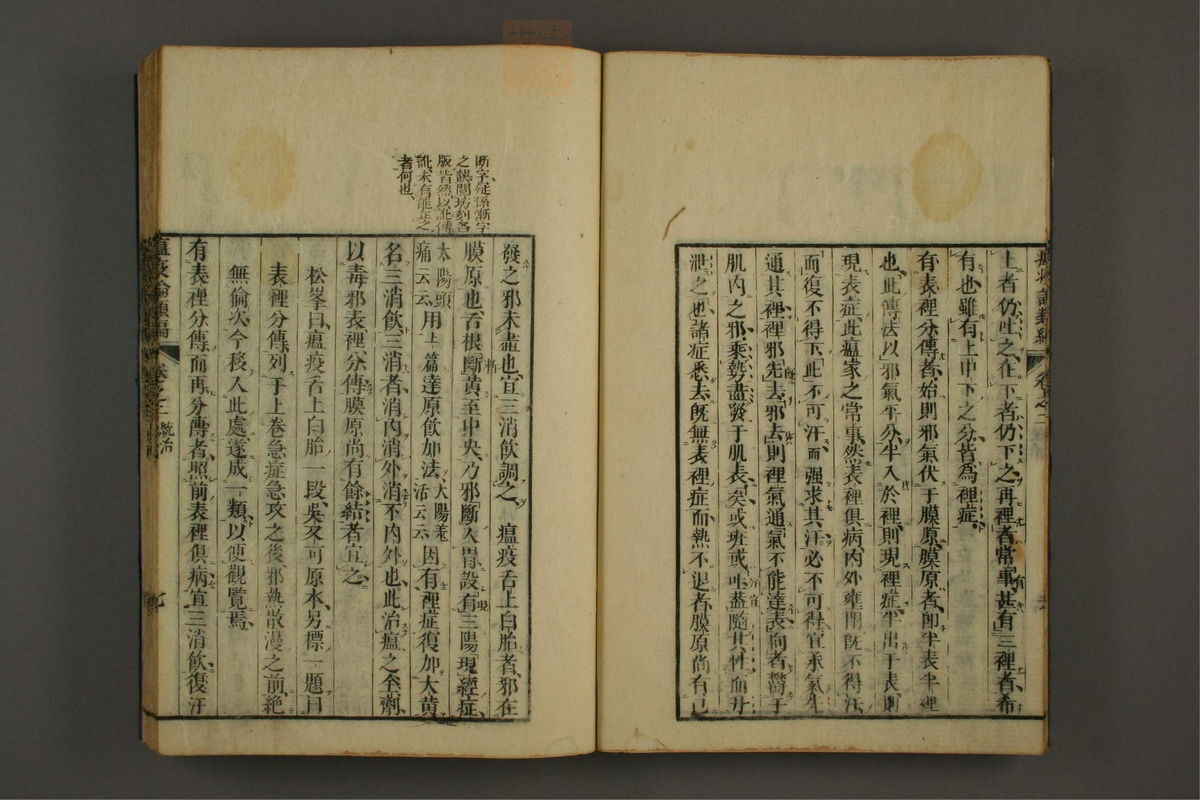 上者仍吐之在下者仍下之再裡者常事甚有三裡者希
有也雖有上中下之分皆為裡症
有表裡分傳者始則邪氣伏于膜原膜原者即半表半裡
也此傳法以邪氣平分半入於裡則現裡症半出于表則
現表症此瘟家之常事然表裡俱病內外壅閉既不得汗
而復不得下此不可汗而强求其汗必不可得宜承氣先
通其裡裡邪先去邪去則裡氣通氣不能達表向者鬱于
肌肉之邪乘勢盡發于肌表矣或斑或吐盖隨其性而升
泄之也諸症悉去既無表裡症而熱不退者膜原尚有已
發之邪未盡也宜三消飲調之 瘟疫舌上白胎者邪在
膜原也舌根斷黄至中央乃邪斷入胃設有三陽現經症
太陽頭痛云云用上篇達原飲加法太陽羗活云云因有裡症復加大黄
名三消飲三消者消內消外消不內外也此治瘟之全劑
以毒邪表裡分傳膜原尚有餘結者宜之
松峯曰瘟疫舌上白胎一段吳又可原本另標一題目
表裡分傳列于上卷急症急攻之後邪熱散漫之前絶
無倫次今移入此處遂成一類以便觀覽焉
有表裡分傳而再分傳者照前表裡俱病宜三消飲復汗
断字疑係漸字
之誤閱坊刻各
版皆然以訛傳
訛未有能正之
者何也
瘟疫論類編
卷之二
統治
七